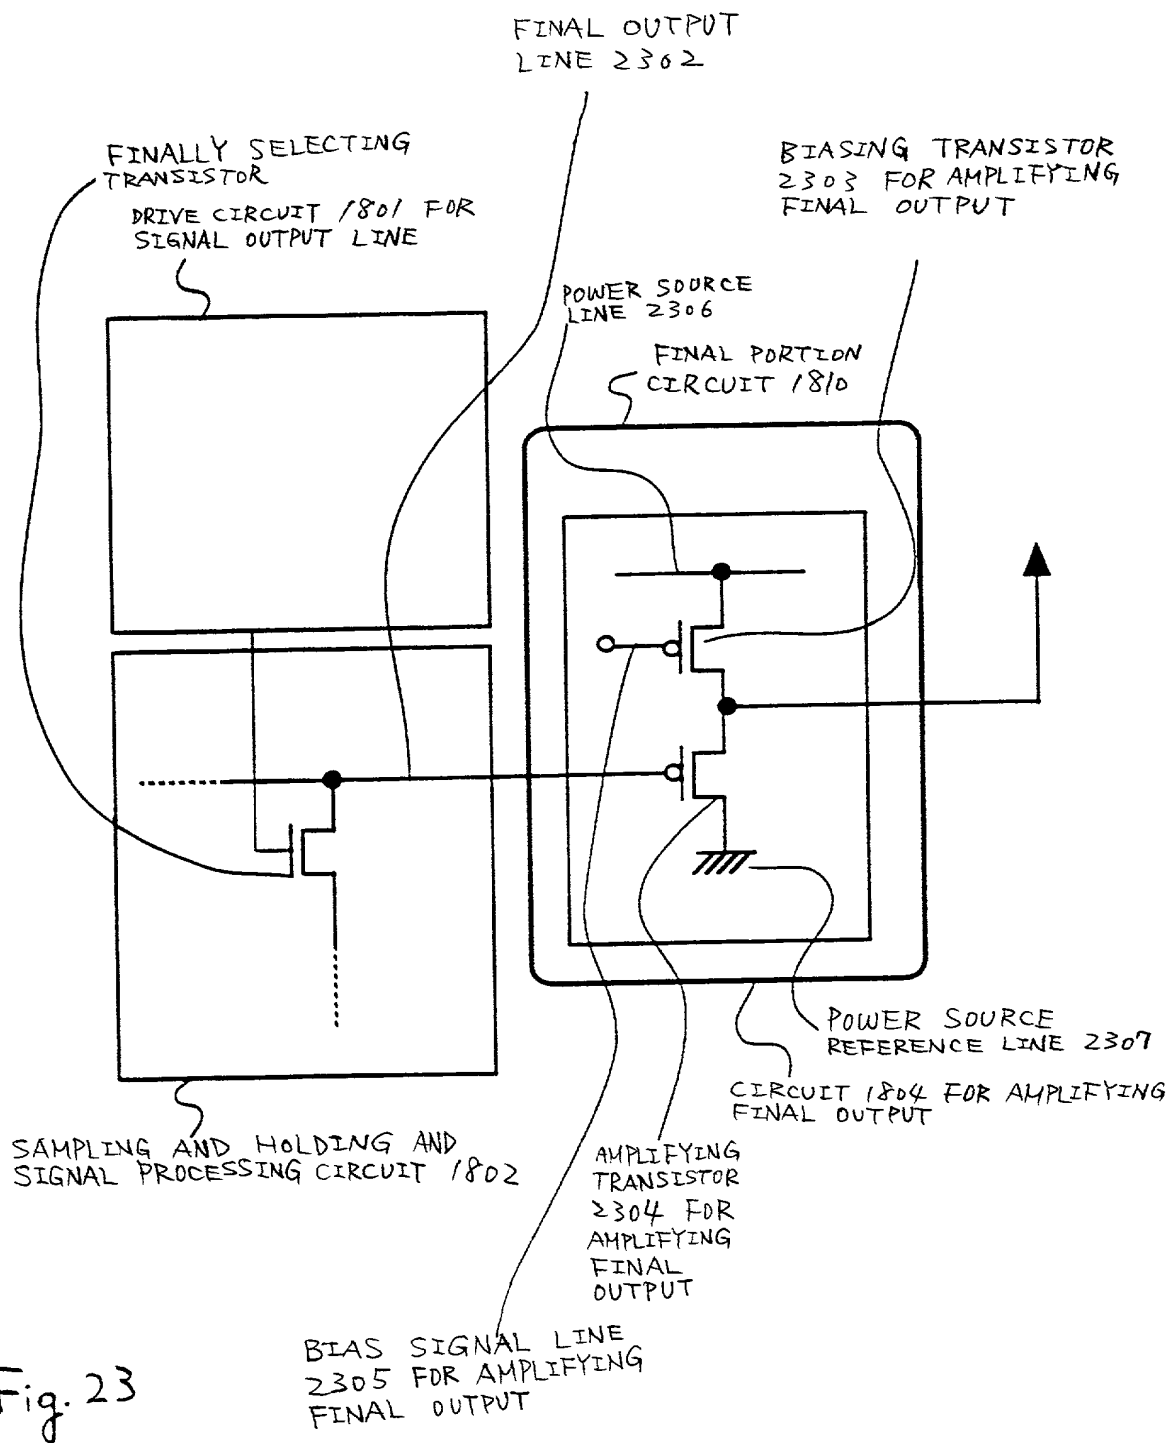 FINAL OUTPUT
LINE 2302
FINALLY SELECTING
TRANSISTOR
DRIVE CIRCUIT 1801 FOR
SIGNAL OUTPUT LINE
BIASING TRANSISTOR
2303 FOR AMPLIFYING
FINAL OUTPUT
POWER SOURCE
LINE 2306
FINAL PORTION
CIRCUIT 1810
POWER SOURCE
REFERENCE LINE 2307
CIRCUIT 1804 FOR AMPLIFYING
FINAL OUTPUT
SAMPLING AND HOLDING AND
SIGNAL PROCESSING CIRCUIT 1802
AMPLIFYING
TRANSISTOR
2304 FOR
AMPLIFYING
FINAL
OUTPUT
BIAS SIGNAL LINE
2305 FOR AMPLIFYING
FINAL OUTPUT
Fig. 23